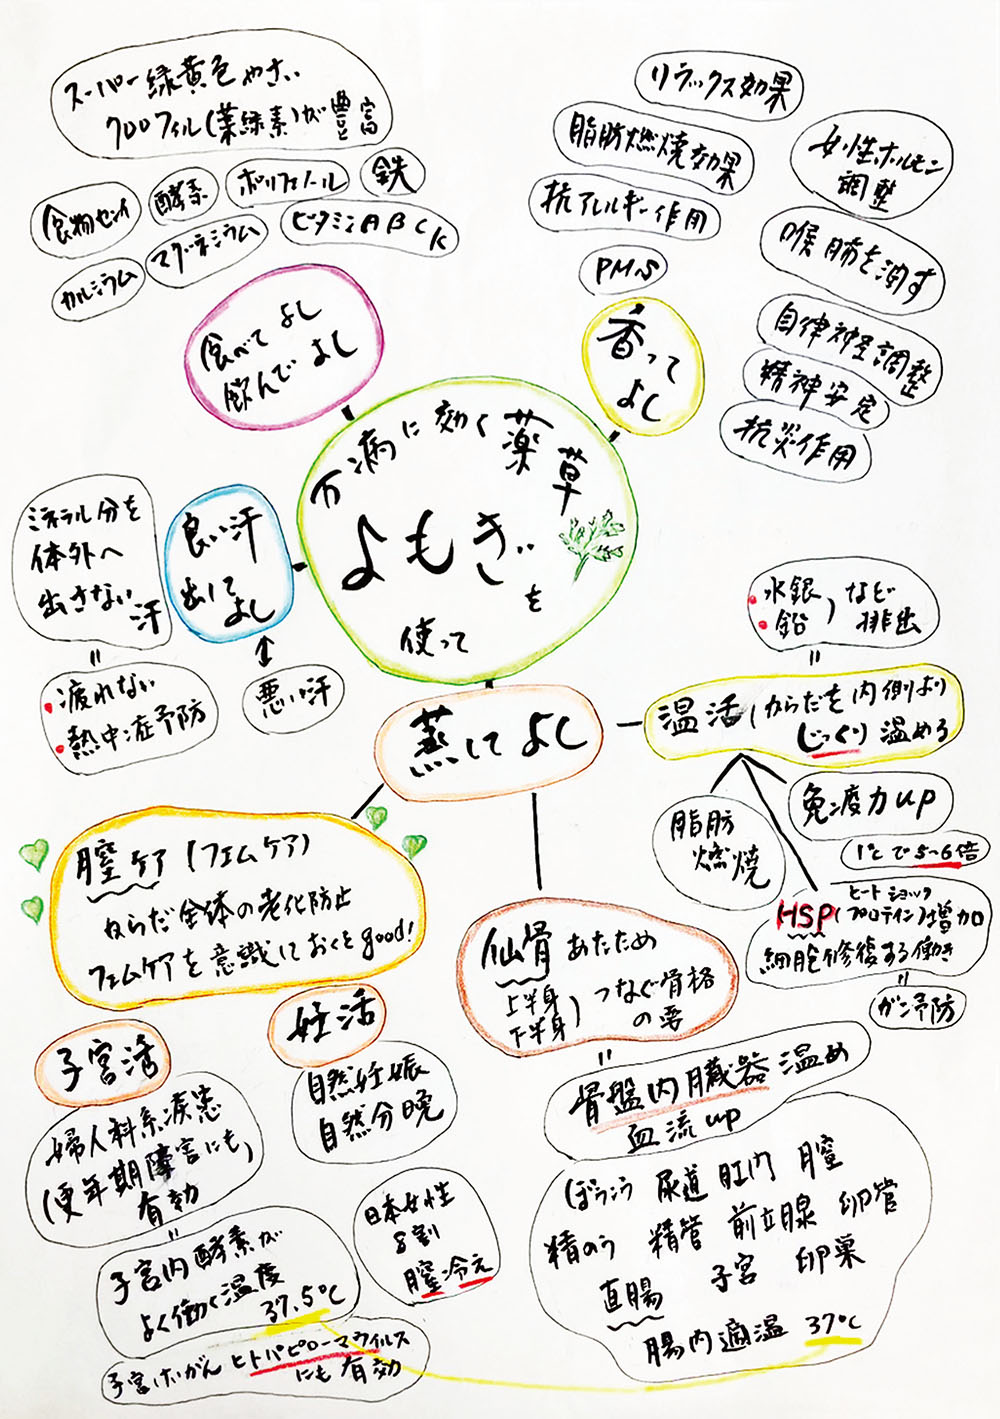 スーパー緑黄色やさい
クロロフィル(葉緑素)が豊富
食物センイ
酵素
ポリフェノール
鉄
カルシウム
マグネシウム
ビタミンABCK
食べてよし
飲んでよし
リラックス効果
脂肪燃焼効果
抗アレルギー作用
PMS
女性ホルモン
調整
喉肺を潤す
自律神経調整
精神安定
抗炎作用
香って
よし
万病に効く薬草
よもぎ
を
使って
良い汗
出して
よし
ミネラル分を
体外へ
出さない
汗
=
・疲れない
・熱中症予防
↑
悪い汗
蒸してよし
・水銀
・鉛
)など
排出
=
温活(からだを内側より
じっくり温める
脂肪
燃焼
免疫力up
1℃で5~6倍
ヒートショック
HSP(プロテイン)増加
細胞修復する働き
=
ガン予防
膣ケア(フェムケア)
からだ全体の老化防止
フェムケアを意識しておくとgood!
仙骨あたため
上半身
下半身
)つなぐ骨格
の要
=
骨盤内臓器温め
血流up
ぼうこう 尿道 肛門 膣
精のう 精管 前立腺 卵管
直腸 子宮 卵巣
腸内適温 37℃
子宮活
婦人科系疾患
(更年期障害にも)
有効
=
子宮内酵素が
よく働く温度
37.5℃
子宮けいがん ヒトパピローマウイルス
にも有効
妊活
自然妊娠
自然分娩
日本女性
8割
膣冷え